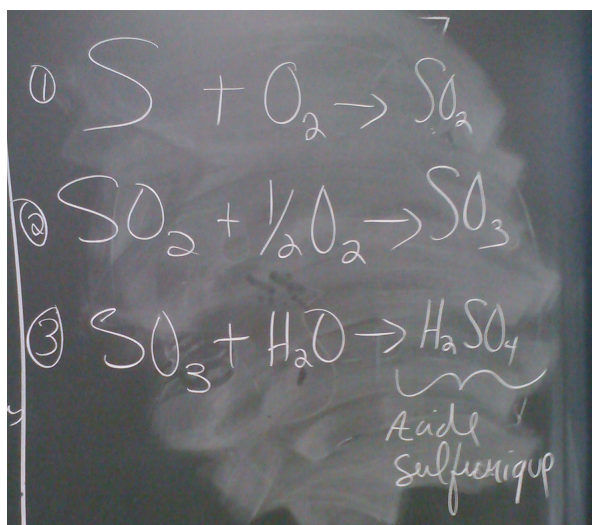 ① S + O₂ → SO₂
② SO₂ + ½O₂ → SO₃
③ SO₃ + H₂O → H₂SO₄
Acide
sulfurique